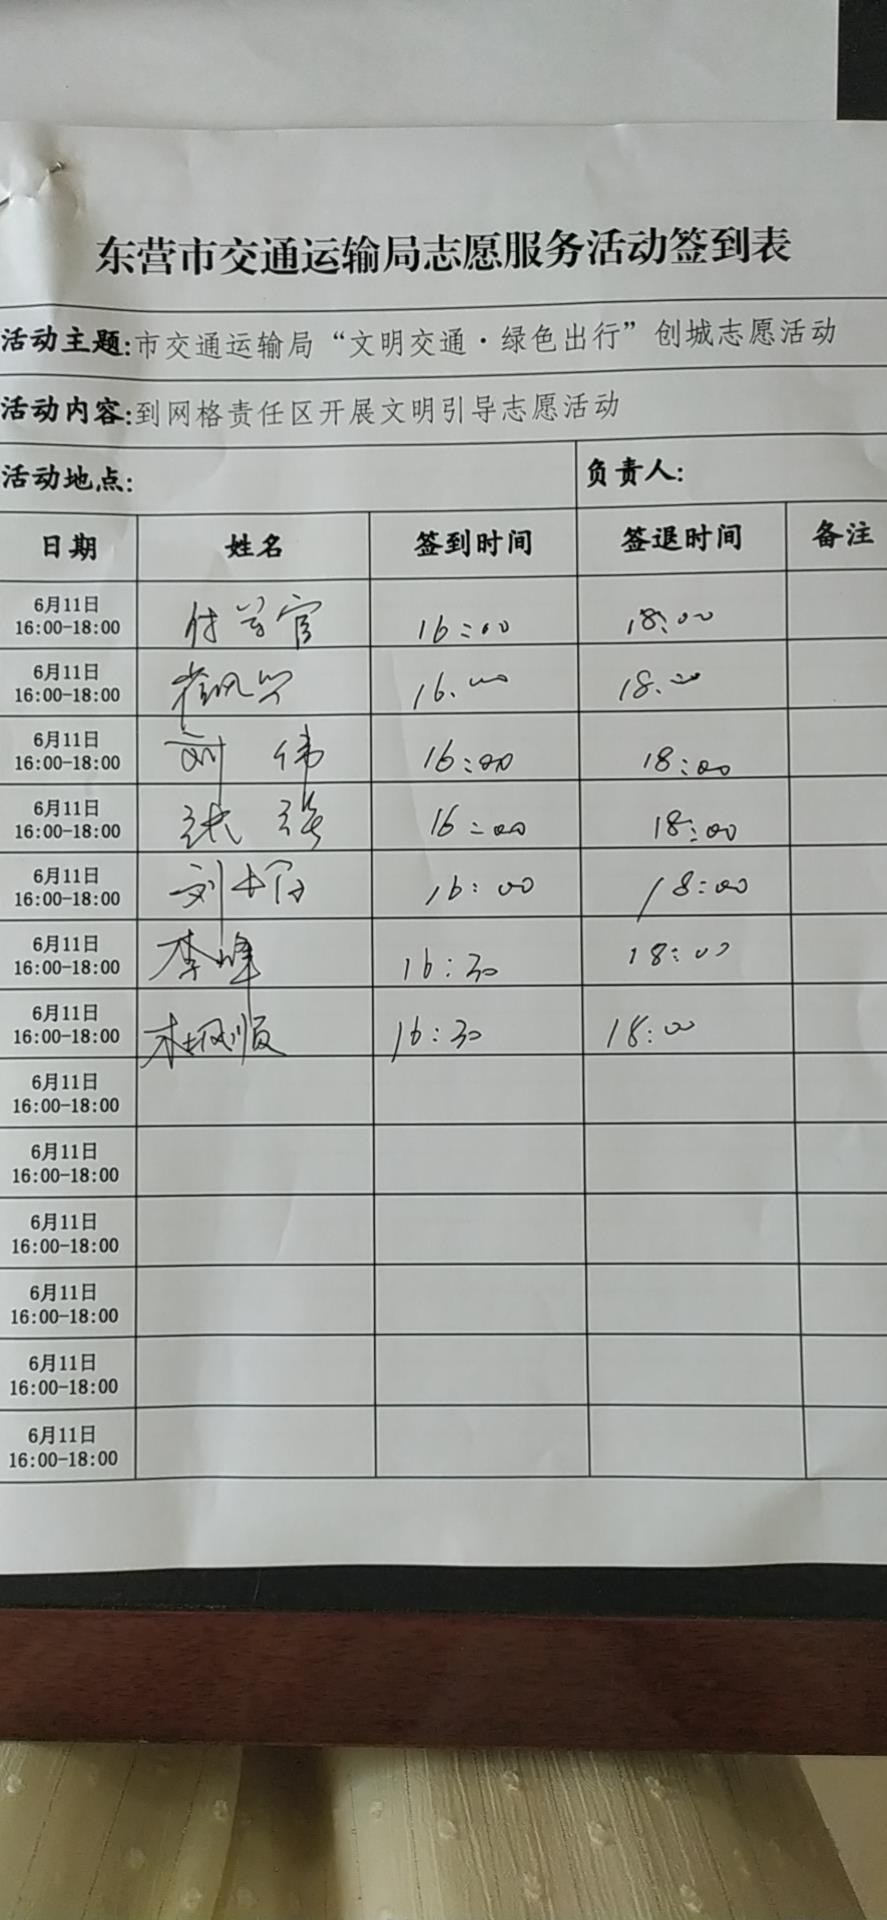 东营市交通运输局志愿服务活动签到表
活动主题:市交通运输局“文明交通·绿色出行”创城志愿活动
活动内容:到网格责任区开展文明引导志愿活动
活动地点: 负责人:
日期 姓名 签到时间 签退时间 备注
6月11日
16:00-18:00 官 16:00 18:00
6月11日
16:00-18:00 16:00 18:00
6月11日
16:00-18:00 刘 伟 16:00 18:00
6月11日
16:00-18:00 张 16:00 18:00
6月11日
16:00-18:00 刘 16:00 18:00
6月11日
16:00-18:00 李峰 16:30 18:00
6月11日
16:00-18:00 杜风顺 16:30 18:00
6月11日
16:00-18:00
6月11日
16:00-18:00
6月11日
16:00-18:00
6月11日
16:00-18:00
6月11日
16:00-18:00
6月11日
16:00-18:00